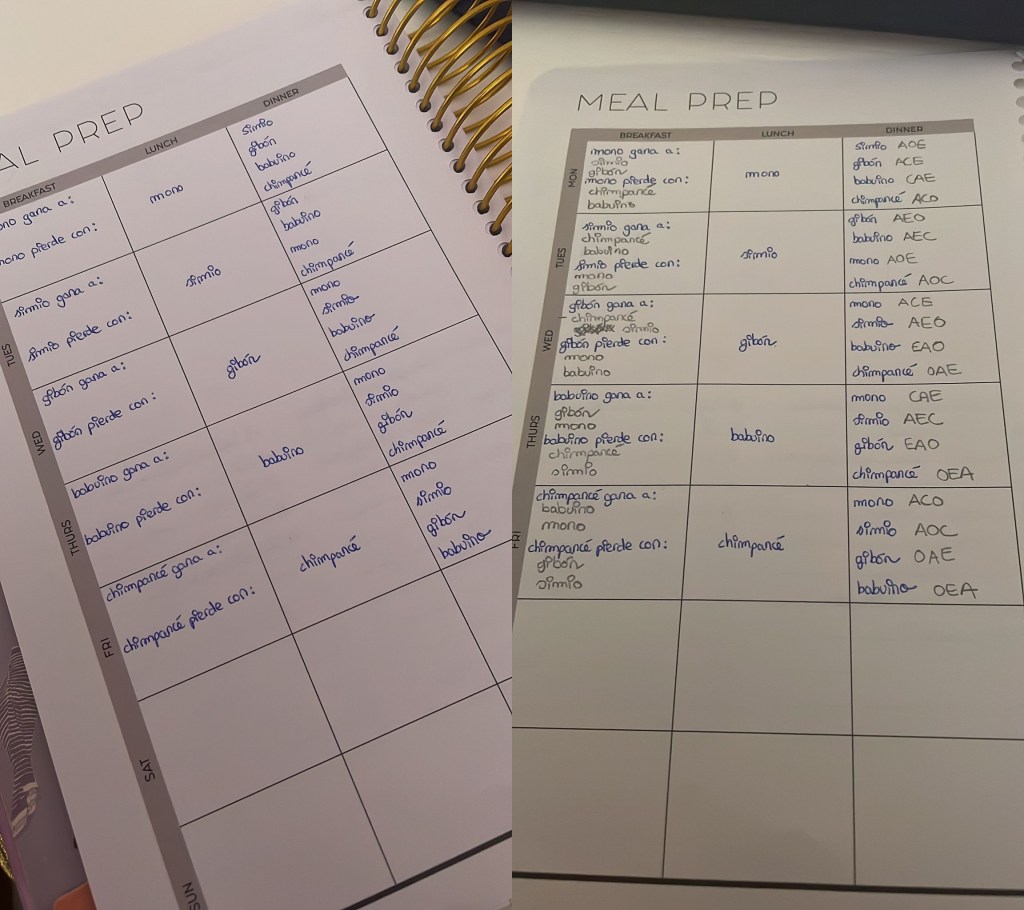 AL PREP
BREAKFAST
LUNCH
DINNER
ono gana a:
mono pierde con:
mono
simio
gibón
babuino
chimpancé
TUES
simio gana a:
simio pierde con:
simio
gibón
babuino
mono
chimpancé
WED
gibón gana a:
gibón pierde con:
gibón
mono
simio
babuino
chimpancé
THURS
babuino gana a:
babuino pierde con:
babuino
mono
simio
gibón
chimpancé
FRI
chimpancé gana a:
chimpancé pierde con:
chimpancé
mono
simio
gibón
babuino
SAT
SUN
MEAL PREP
BREAKFAST
LUNCH
DINNER
MON
mono gana a:
simio
gibón
mono pierde con:
chimpancé
babuino
mono
simio AOE
gibón ACE
babuino CAE
chimpancé ACO
TUES
simio gana a:
chimpancé
babuino
simio pierde con:
mono
gibón
simio
gibón AEO
babuino AEC
mono AOE
chimpancé AOC
WED
gibón gana a:
chimpancé
simio
gibón pierde con:
mono
babuino
gibón
mono ACE
simio AEO
babuino EAO
chimpancé OAE
THURS
babuino gana a:
gibón
mono
babuino pierde con:
chimpancé
simio
babuino
mono CAE
simio AEC
gibón EAO
chimpancé OEA
FRI
chimpancé gana a:
babuino
mono
chimpancé pierde con:
gibón
simio
chimpancé
mono ACO
simio AOC
gibón OAE
babuino OEA